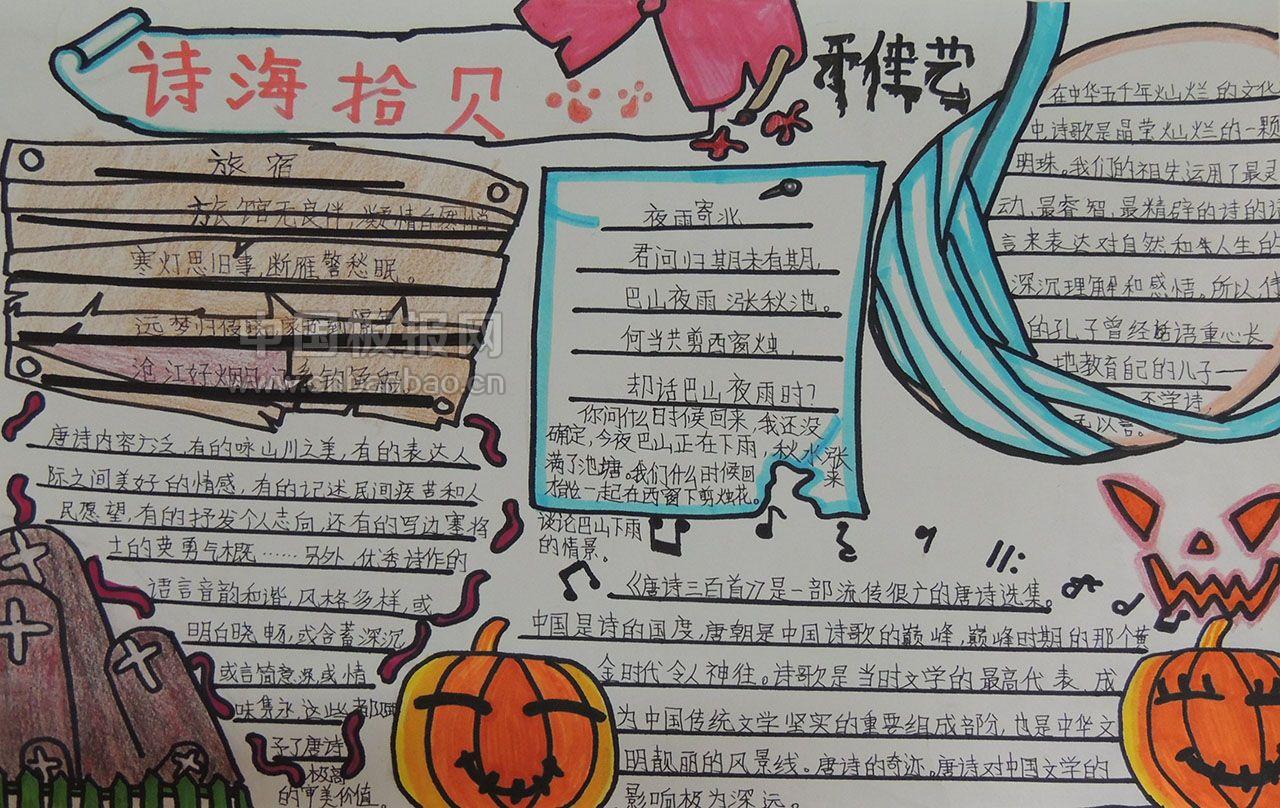 诗海拾贝
佳艺
旅宿
旅馆无良伴,凝情自
寒灯思旧事,断雁警愁眠。
远梦归
沧江好烟月
中国板报网
www.cnbanbao.cn
唐诗内容广泛,有的咏山川之美,有的表达人
际之间美好的情感,有的记述民间疾苦和人
民愿望,有的抒发个人志向,还有的写边塞将
士的英勇与概……另外,优秀诗作的
语言音韵和谐,风格多样,或
明白晓畅,或含蓄深沉
或言简意深,或情
味隽永,这些都
予了唐诗
极高
的审美价值。
夜雨寄北
君问归期未有期,
巴山夜雨涨秋池。
何当共剪西窗烛,
却话巴山夜雨时?
你问什么时候回来,我还没
确定,今夜巴山正在下雨,秋水涨
满了池塘。我们什么时候回来
相一起在西窗下剪烛花。
谈论巴山下雨
的情景。
在中华五千年灿烂的文化
中诗歌是晶莹灿烂的一颗
明珠。我们的祖先运用了最灵
动、最睿智、最精辟的诗的语
言来表达对自然和人生的
深沉理解和感情。所以
的孔子曾经语重心长
地教育自己的儿子一
不学诗,
无以言。
《唐诗三百首》是一部流传很广的唐诗选集。
中国是诗的国度,唐朝是中国诗歌的巅峰,巅峰时期的那个黄
金时代令人神往。诗歌是当时文学的最高代表,成
为中国传统文学坚实的重要组成部分,也是中华文
明靓丽的风景线。唐诗的奇迹。唐诗对中国文学的
影响极为深远。